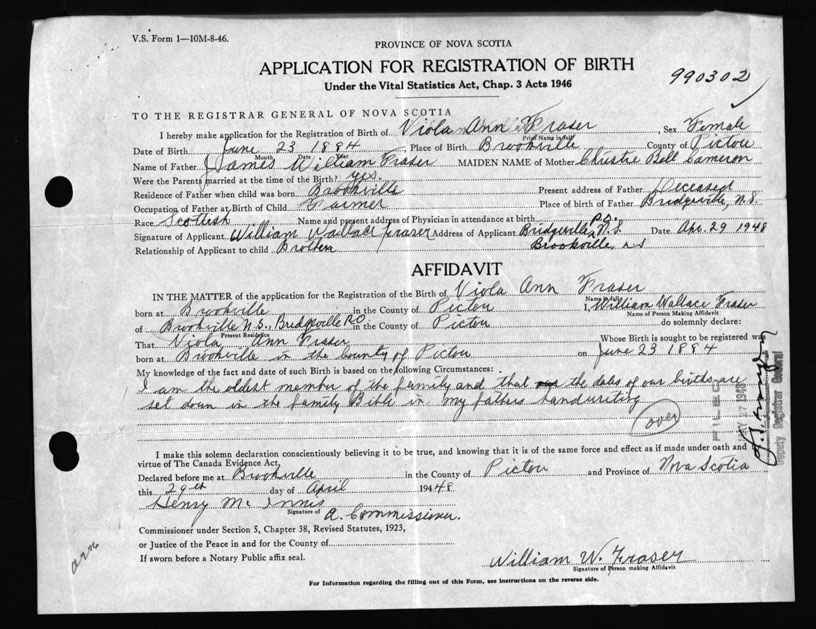 V.S. Form 1—10M-8-46.
PROVINCE OF NOVA SCOTIA
APPLICATION FOR REGISTRATION OF BIRTH
Under the Vital Statistics Act, Chap. 3 Acts 1946
990302
TO THE REGISTRAR GENERAL OF NOVA SCOTIA
I hereby make application for the Registration of Birth of Viola Ann Fraser, Sex Female
Print Name in full
Date of Birth June 23 1884, Place of Birth Brookville County of Pictou
Month Date Year
Name of Father James William Fraser MAIDEN NAME of Mother Christie Bell Cameron
Were the Parents married at the time of the Birth? yes.
Residence of Father when child was born Brookville Present address of Father Deceased
Occupation of Father at Birth of Child Farmer Place of birth of Father Bridgeville, N.S.
Race Scottish Name and present address of Physician in attendance at birth
Signature of Applicant William Wallace Fraser Address of Applicant Bridgeville P.O. N.S. Date Apr. 29 1948
Relationship of Applicant to child Brother Brookville, NS
AFFIDAVIT
IN THE MATTER of the application for the Registration of the Birth of Viola Ann Fraser
Name in full
born at Brookville in the County of Pictou I, William Wallace Fraser
Name of Person Making Affidavit
of Brookville N.S., Bridgeville P.O in the County of Pictou do solemnly declare:
Present Residence
That Viola Ann Fraser Whose Birth is sought to be registered was
born at Brookville in the County of Pictou on June 23 1884
My knowledge of the fact and date of such Birth is based on the following Circumstances:
I am the oldest member of the family and that the dates of our births are
set down in the family Bible in my fathers handwriting
over
FILED
MAY 27 1948
Deputy Registrar General
I make this solemn declaration conscientiously believing it to be true, and knowing that it is of the same force and effect as if made under oath and
virtue of The Canada Evidence Act,
Declared before me at Brookville in the County of Pictou and Province of Nova Scotia
this 29th day of April 1948
Henry McInnis
Signature of A. Commissioner.
Commissioner under Section 5, Chapter 38, Revised Statutes, 1923,
or Justice of the Peace in and for the County of
If sworn before a Notary Public affix seal.
William W. Fraser
Signature of Person making Affidavit
For Information regarding the filling out of this Form, see instructions on the reverse side.